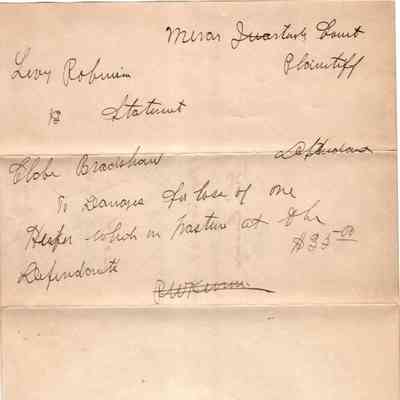 Court
Plaintiff
Levy Robinson
vs Statment
Globe Bradshaw Defendant
To Damages for lose of one
Heifer which in Pasture at the
Defendants $35.00